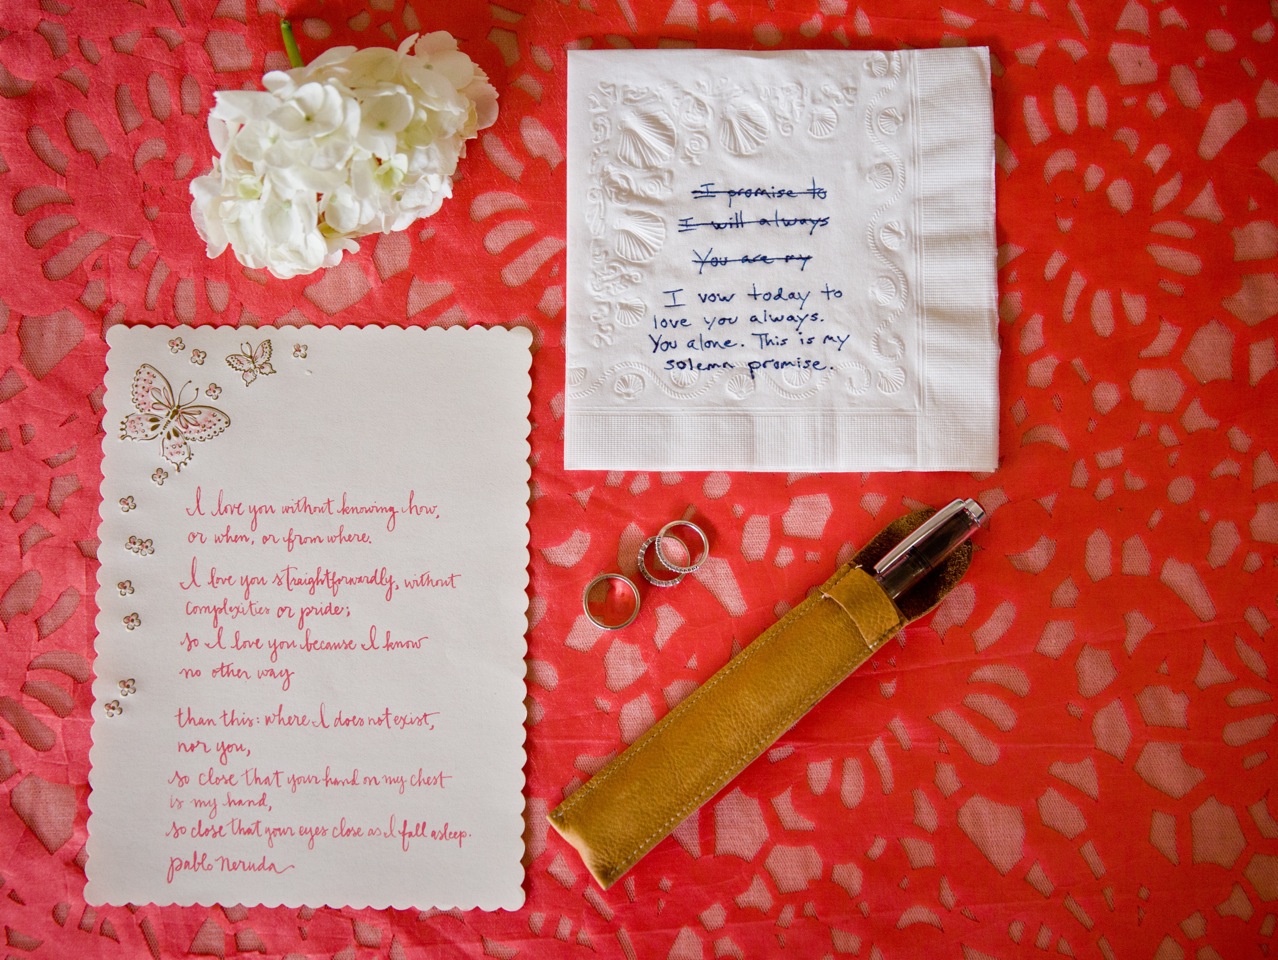 I promise to
I will always
You are my
I vow today to
love you always.
You alone. This is my
solemn promise.
I love you without knowing how,
or when, or from where.
I love you straightforwardly, without
complexities or pride;
so I love you because I know
no other way
than this: where I does not exist,
nor you,
so close that your hand on my chest
is my hand,
so close that your eyes close as I fall asleep.
pablo Neruda